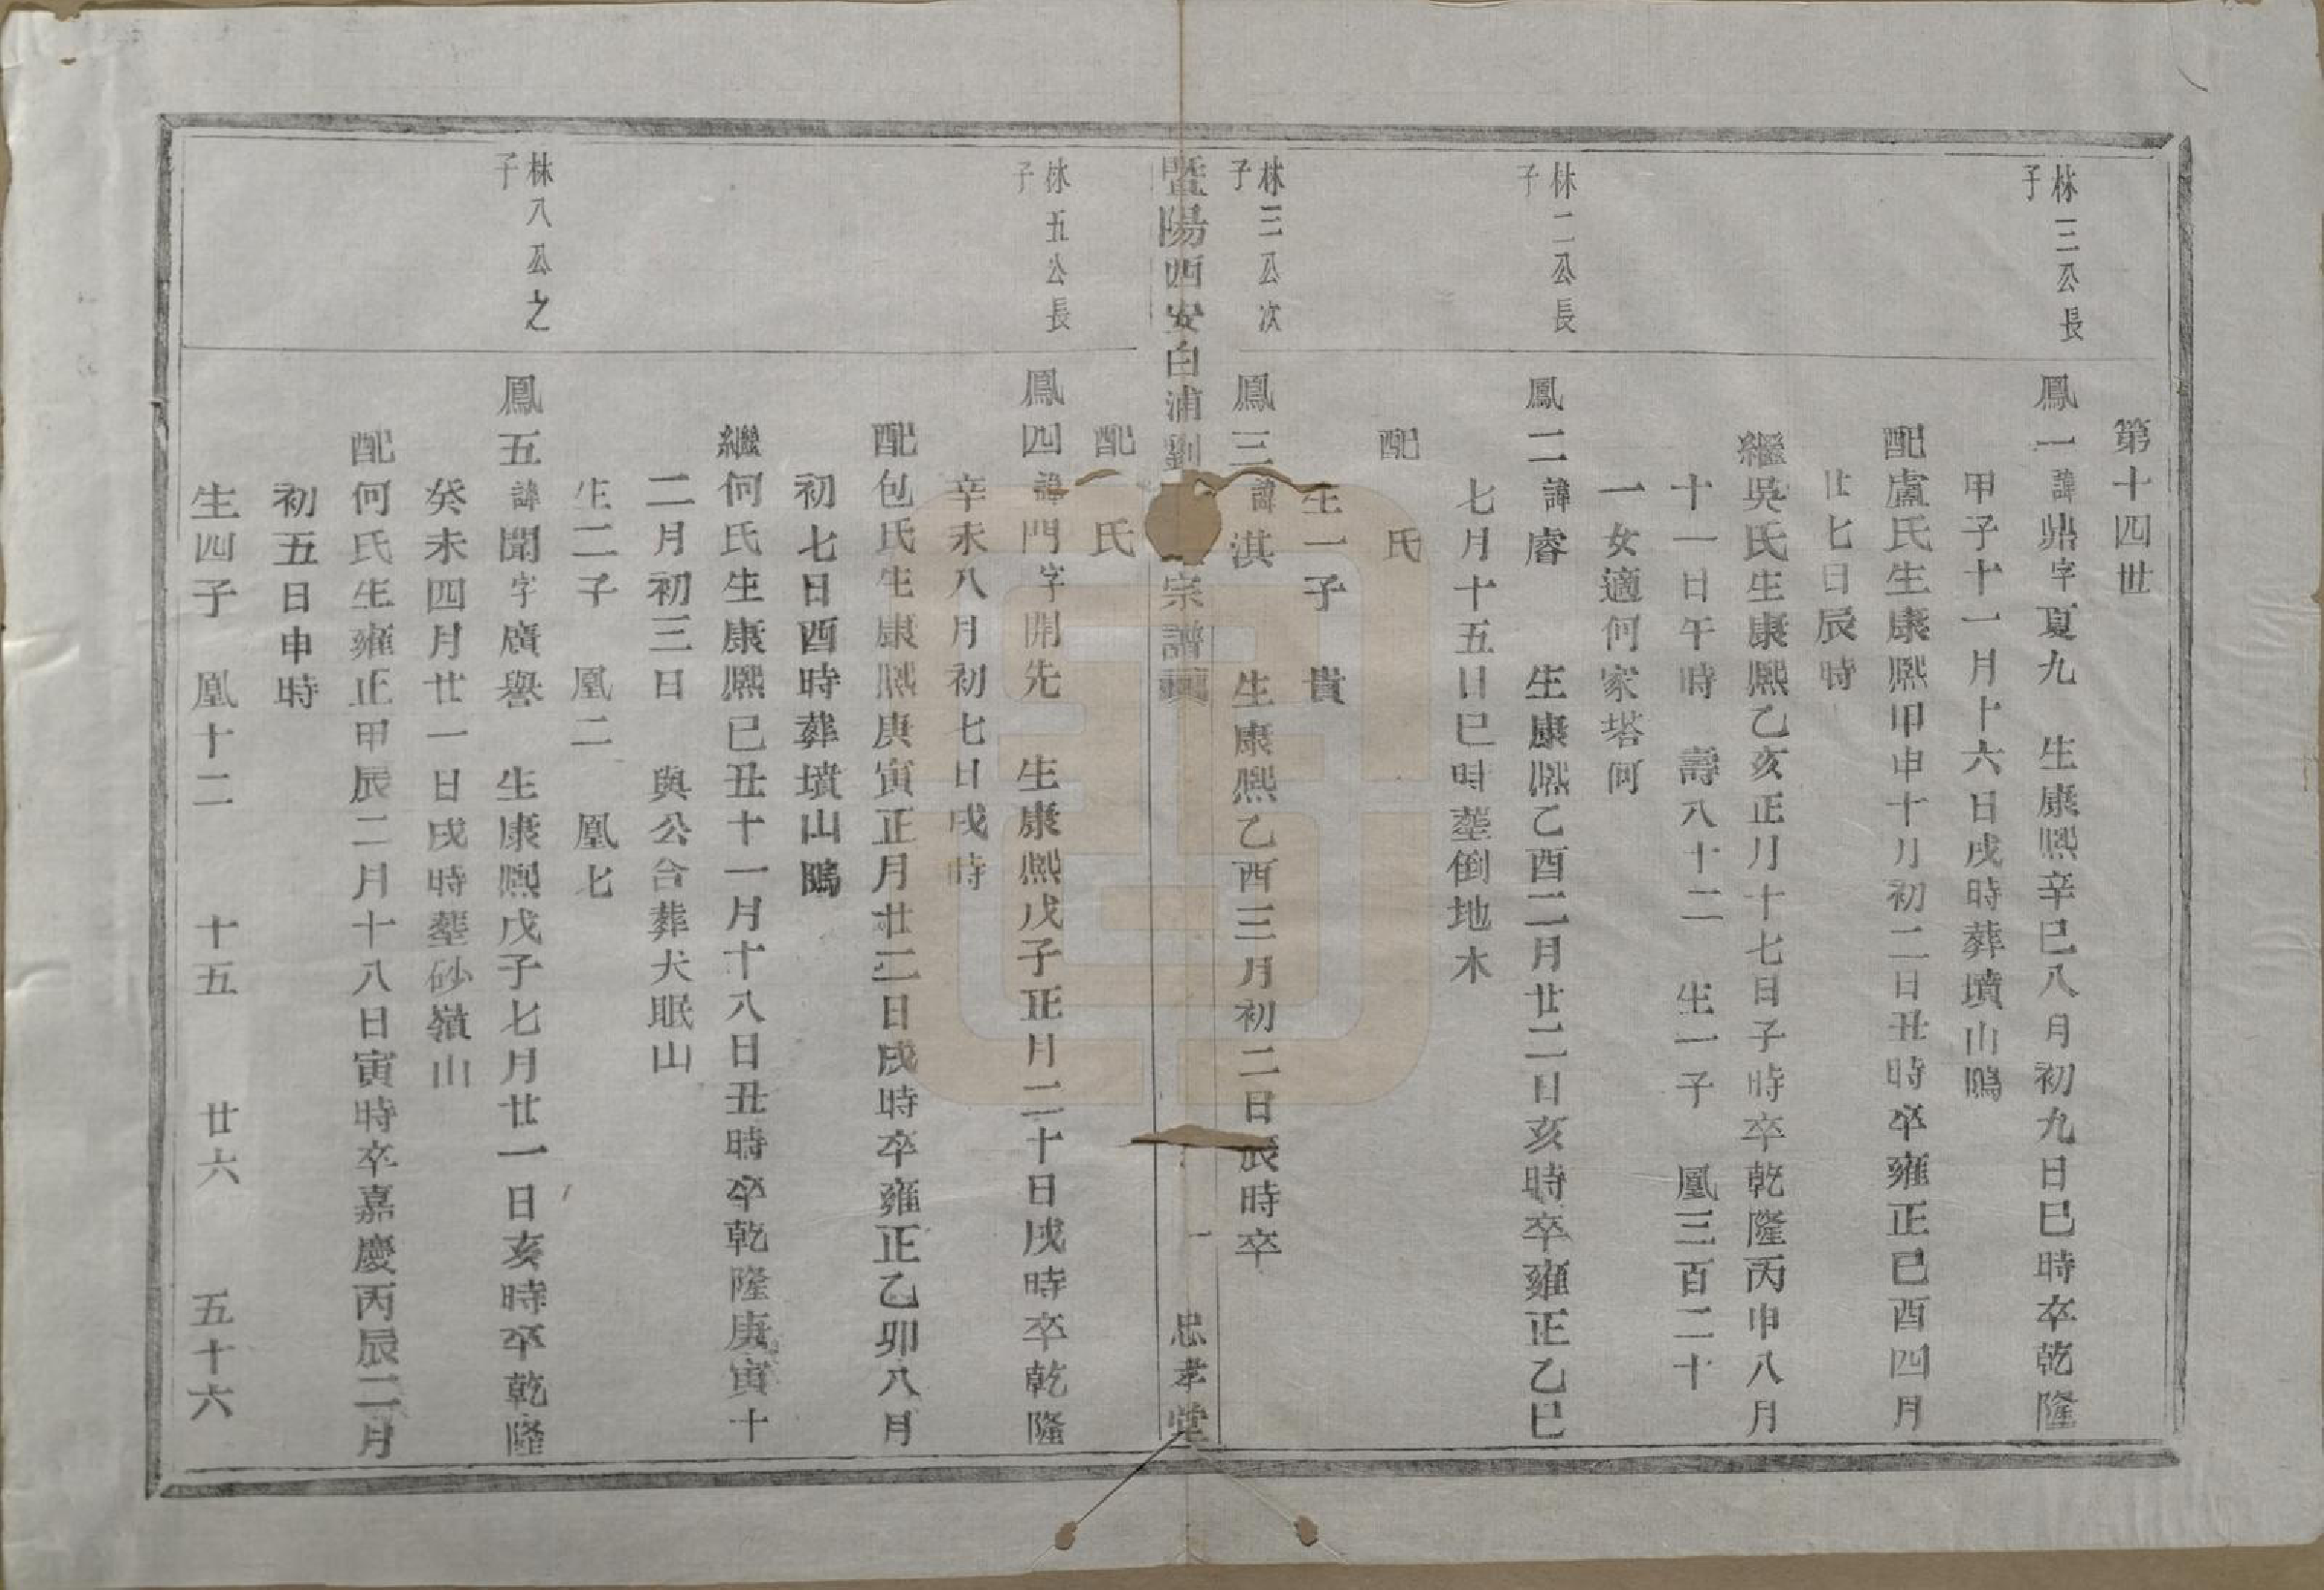 第十四世
林三公長
子
鳳一諱鼎字夏九　生康熙辛巳八月初九日巳時卒乾隆
甲子十一月十六日戌時葬墳山鴟
配盧氏生康熙甲申十月初二日丑時卒雍正己酉四月
廿七日辰時
繼吳氏生康熙乙亥正月十七日子時卒乾隆丙申八月
十一日午時　壽八十二　生一子　凰三百二十
一女適何家塔何
林二公長
子
鳳二諱睿　生康熙乙酉二月廿二日亥時卒雍正乙巳
七月十五日巳時塟倒地木
配　氏
生一子　貴
林三公次
子
鳳三諱淇　生康熙乙酉三月初二日辰時卒
暨陽西安白浦劉　宗譜　一　忠孝堂
配　氏
林五公長
子
鳳四諱門字開先　生康熙戊子正月二十日戌時卒乾隆
辛未八月初七日戌時
配包氏生康熙庚寅正月廿二日戌時卒雍正乙卯八月
初七日酉時葬墳山鴟
繼何氏生康熙己丑十一月十八日丑時卒乾隆庚寅十
二月初三日　與公合葬犬眠山
生二子　凰二　凰七
林八公之
子
鳳五諱聞字廣譽　生康熙戊子七月廿一日亥時卒乾隆
癸未四月廿一日戌時塟砂嶺山
配何氏生雍正甲辰二月十八日寅時卒嘉慶丙辰二月
初五日申時
生四子　凰十二　十五　廿六　五十六